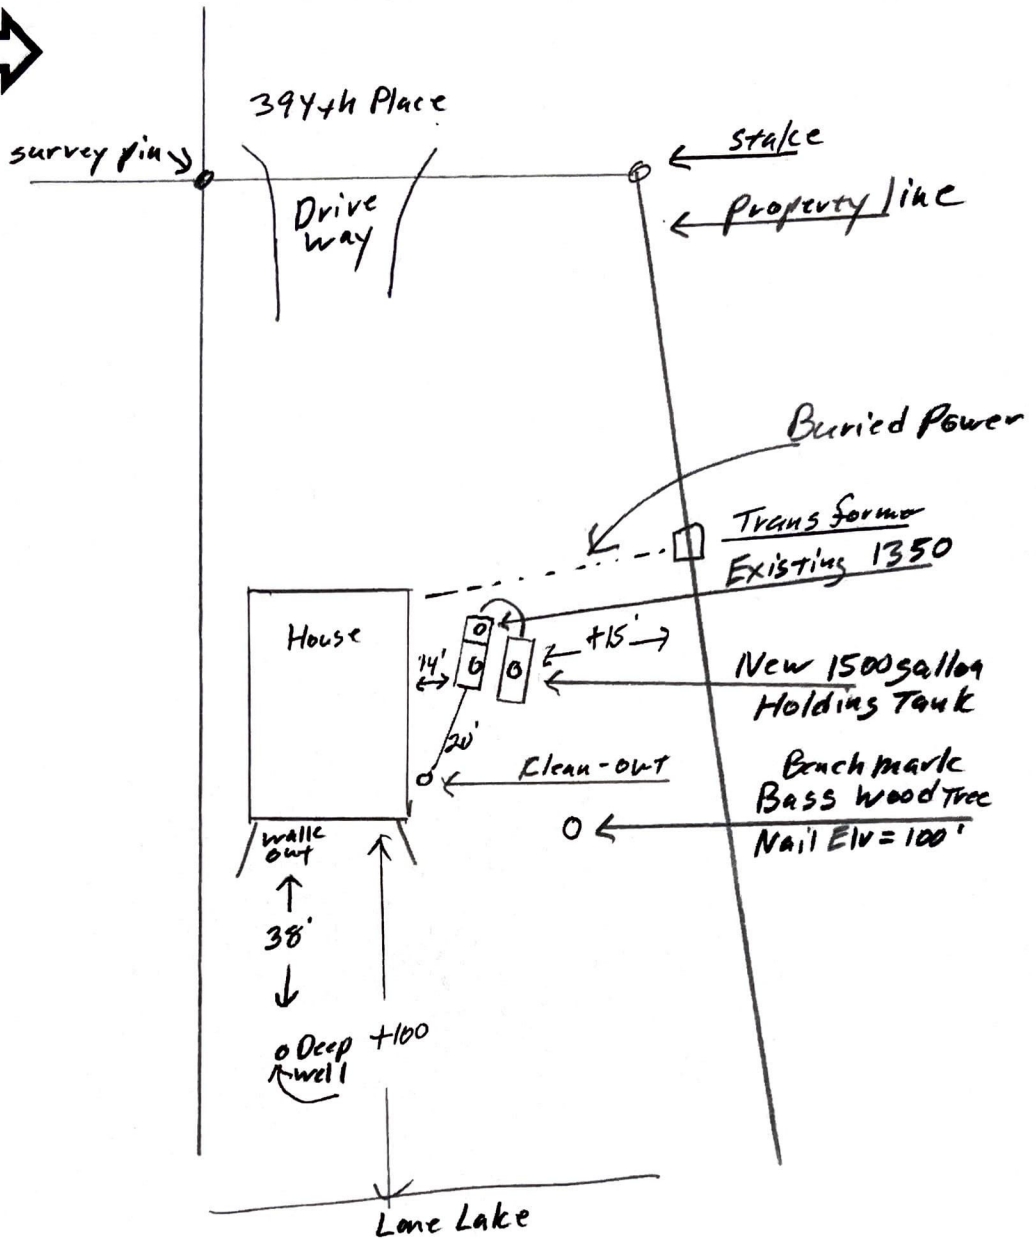 394th Place
survey pin
stake
Drive
way
Property line
Buried Power
Transformer
Existing 1350
House
+15'
14'
New 1500 gallon
Holding Tank
20'
Clean-out
Benchmark
Bass Wood Tree
Nail Elv = 100'
walk
out
38'
Deep
well
+100
Lone Lake